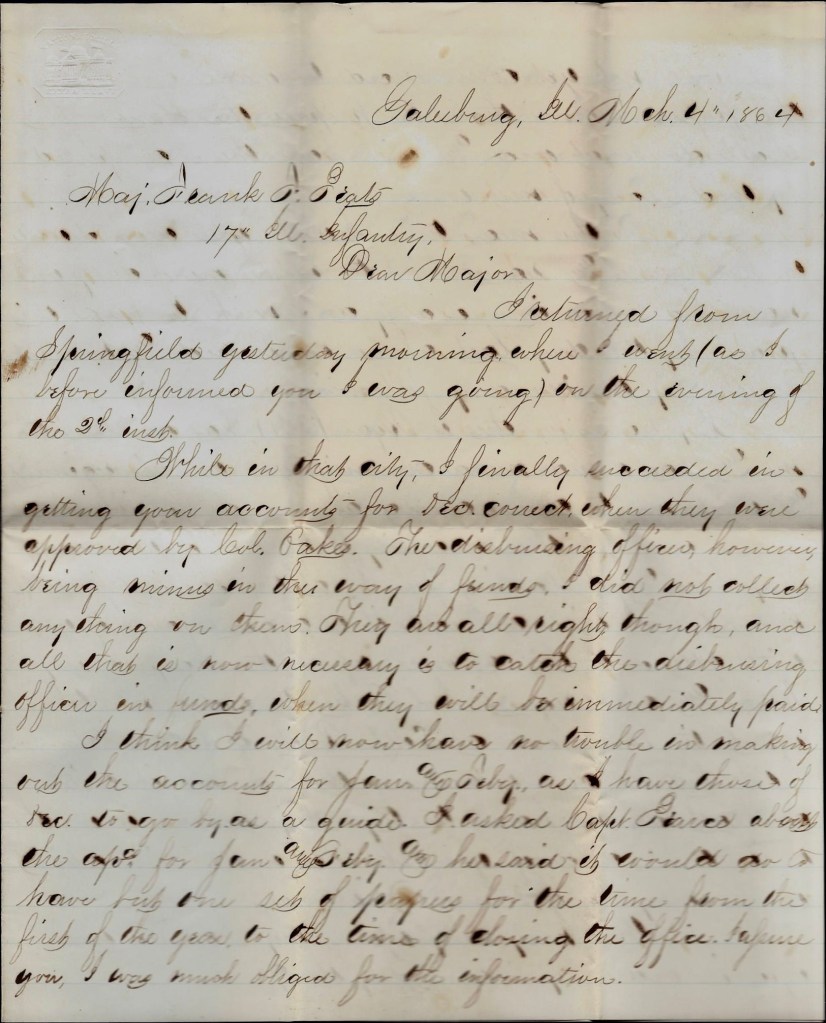 Galesburg, Ill. Mch. 4" 1864
Maj. Frank F. Peats
17" Ill. Infantry.
Dear Major
I returned from
Springfield yesterday morning, where I went (as I
before informed you I was going) on the evening of
the 2d inst.
While in that city, I finally succeeded in
getting your accounts for Dec. correct, when they were
approved by Col. Oakes. The disbursing officer, however,
being minus in the way of funds, I did not collect
any thing on them. They are all right though, and
all that is now necessary is to catch the disbursing
officer in funds, when they will be immediately paid.
I think I will now have no trouble in making
out the accounts for Jan. and Feby., as I have those of
Dec. to go by as a guide. I asked Capt. Pierce about
the for Jan and Feby. and he said it would do to
have but one set of papers for the time from the
first of the year, to the time of closing the office. I assure
you, I was much obliged for the information.